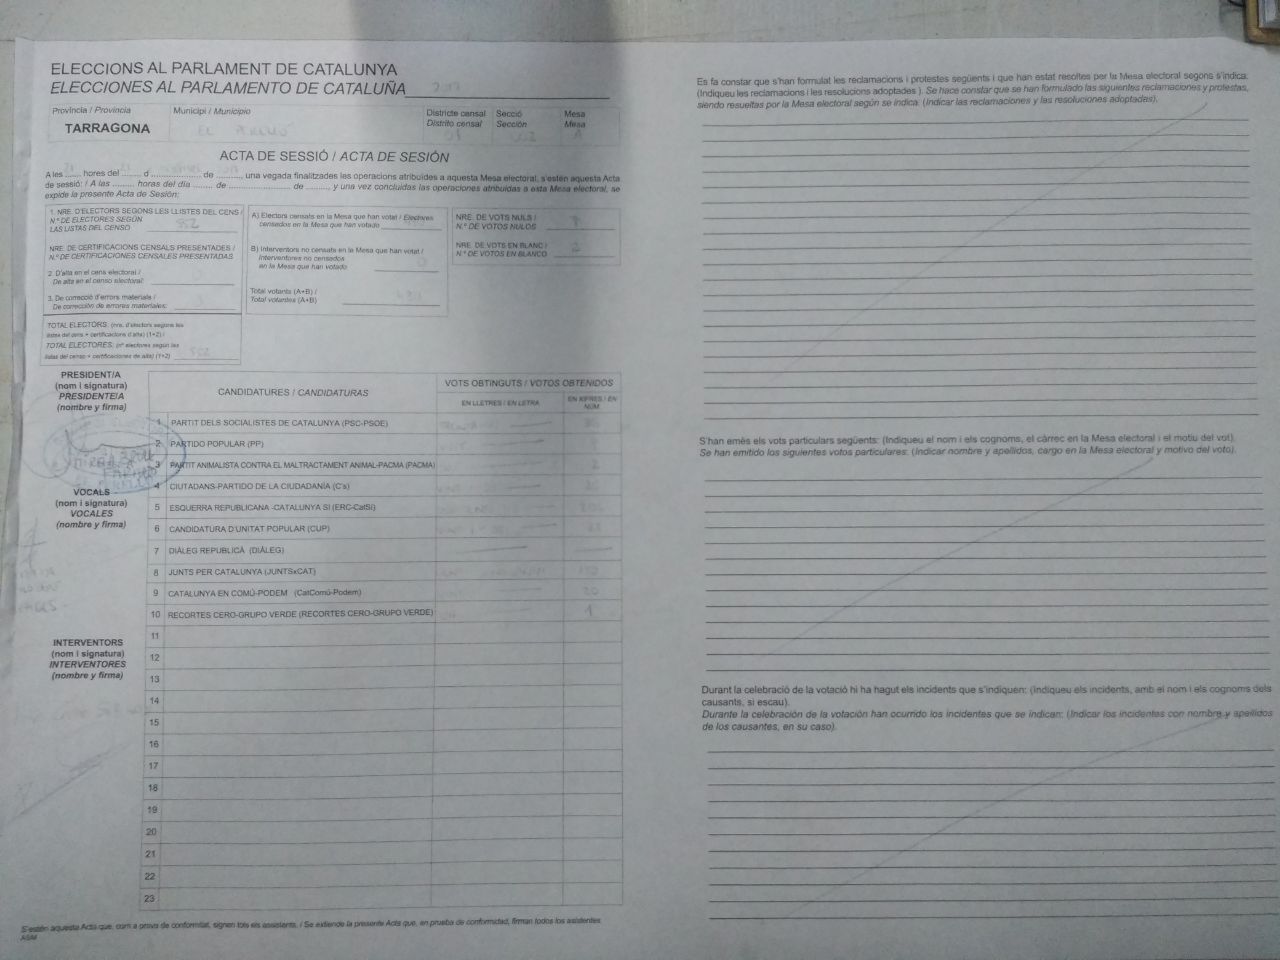 ELECCIONS AL PARLAMENT DE CATALUNYA
ELECCIONES AL PARLAMENTO DE CATALUÑA 2017
Província / Provincia
TARRAGONA
Municipi / Municipio
EL
Districte censal
Distrito censal
01
Secció
Sección
Mesa
Mesa
A
ACTA DE SESSIÓ / ACTA DE SESIÓN
A les ...... hores del ...... d ............... de ......... una vegada finalitzades les operacions atribuïdes a aquesta Mesa electoral, s'estén aquesta Acta
de sessió: / A las ......... horas del día ....... de ....................... de ........, y una vez concluidas las operaciones atribuidas a esta Mesa electoral, se
expide la presente Acta de Sesión:
1. NRE. D'ELECTORS SEGONS LES LLISTES DEL CENS /
N.º DE ELECTORES SEGÚN
LAS LISTAS DEL CENSO 852
NRE. DE CERTIFICACIONS CENSALS PRESENTADES /
N.º DE CERTIFICACIONES CENSALES PRESENTADAS
2. D'alta en el cens electoral /
De alta en el censo electoral:
3. De correcció d'errors materials /
De corrección de errores materiales:
TOTAL ELECTORS: (nre. d'electors segons les
llistes del cens + certificacions d'alta) (1+2) /
TOTAL ELECTORES: (nº electores según las
listas del censo + certificaciones de alta) (1+2) 852
A) Electors censats en la Mesa que han votat / Electores
censados en la Mesa que han votado
B) Interventors no censats en la Mesa que han votat /
Interventores no censados
en la Mesa que han votado 0
Total votants (A+B) /
Total votantes (A+B)
NRE. DE VOTS NULS /
N.º DE VOTOS NULOS
NRE. DE VOTS EN BLANC /
N.º DE VOTOS EN BLANCO 2
PRESIDENT/A
(nom i signatura)
PRESIDENTE/A
(nombre y firma)
VOCALS
(nom i signatura)
VOCALES
(nombre y firma)
INTERVENTORS
(nom i signatura)
INTERVENTORES
(nombre y firma)
CANDIDATURES / CANDIDATURAS
VOTS OBTINGUTS / VOTOS OBTENIDOS
EN LLETRES / EN LETRA
EN XIFRES / EN NÚM
1 PARTIT DELS SOCIALISTES DE CATALUNYA (PSC-PSOE)
2 PARTIDO POPULAR (PP)
3 PARTIT ANIMALISTA CONTRA EL MALTRACTAMENT ANIMAL-PACMA (PACMA) 2
4 CIUTADANS-PARTIDO DE LA CIUDADANÍA (C's)
5 ESQUERRA REPUBLICANA -CATALUNYA SÍ (ERC-CatSí)
6 CANDIDATURA D'UNITAT POPULAR (CUP)
7 DIÀLEG REPUBLICÀ (DIÀLEG)
8 JUNTS PER CATALUNYA (JUNTSxCAT)
9 CATALUNYA EN COMÚ-PODEM (CatComú-Podem) 20
10 RECORTES CERO-GRUPO VERDE (RECORTES CERO-GRUPO VERDE) 1
11
12
13
14
15
16
17
18
19
20
21
22
23
S'estén aquesta Acta que, com a prova de conformitat, signen tots els assistents. / Se extiende la presente Acta que, en prueba de conformidad, firman todos los asistentes.
Es fa constar que s'han formulat les reclamacions i protestes següents i que han estat resoltes per la Mesa electoral segons s'indica.
(Indiqueu les reclamacions i les resolucions adoptades ). Se hace constar que se han formulado las siguientes reclamaciones y protestas,
siendo resueltas por la Mesa electoral según se indica. (Indicar las reclamaciones y las resoluciones adoptadas).
S'han emès els vots particulars següents: (Indiqueu el nom i els cognoms, el càrrec en la Mesa electoral i el motiu del vot).
Se han emitido los siguientes votos particulares: (Indicar nombre y apellidos, cargo en la Mesa electoral y motivo del voto).
Durant la celebració de la votació hi ha hagut els incidents que s'indiquen: (Indiqueu els incidents, amb el nom i els cognoms dels
causants, si escau).
Durante la celebración de la votación han ocurrido los incidentes que se indican: (Indicar los incidentes con nombre y apellidos
de los causantes, en su caso).